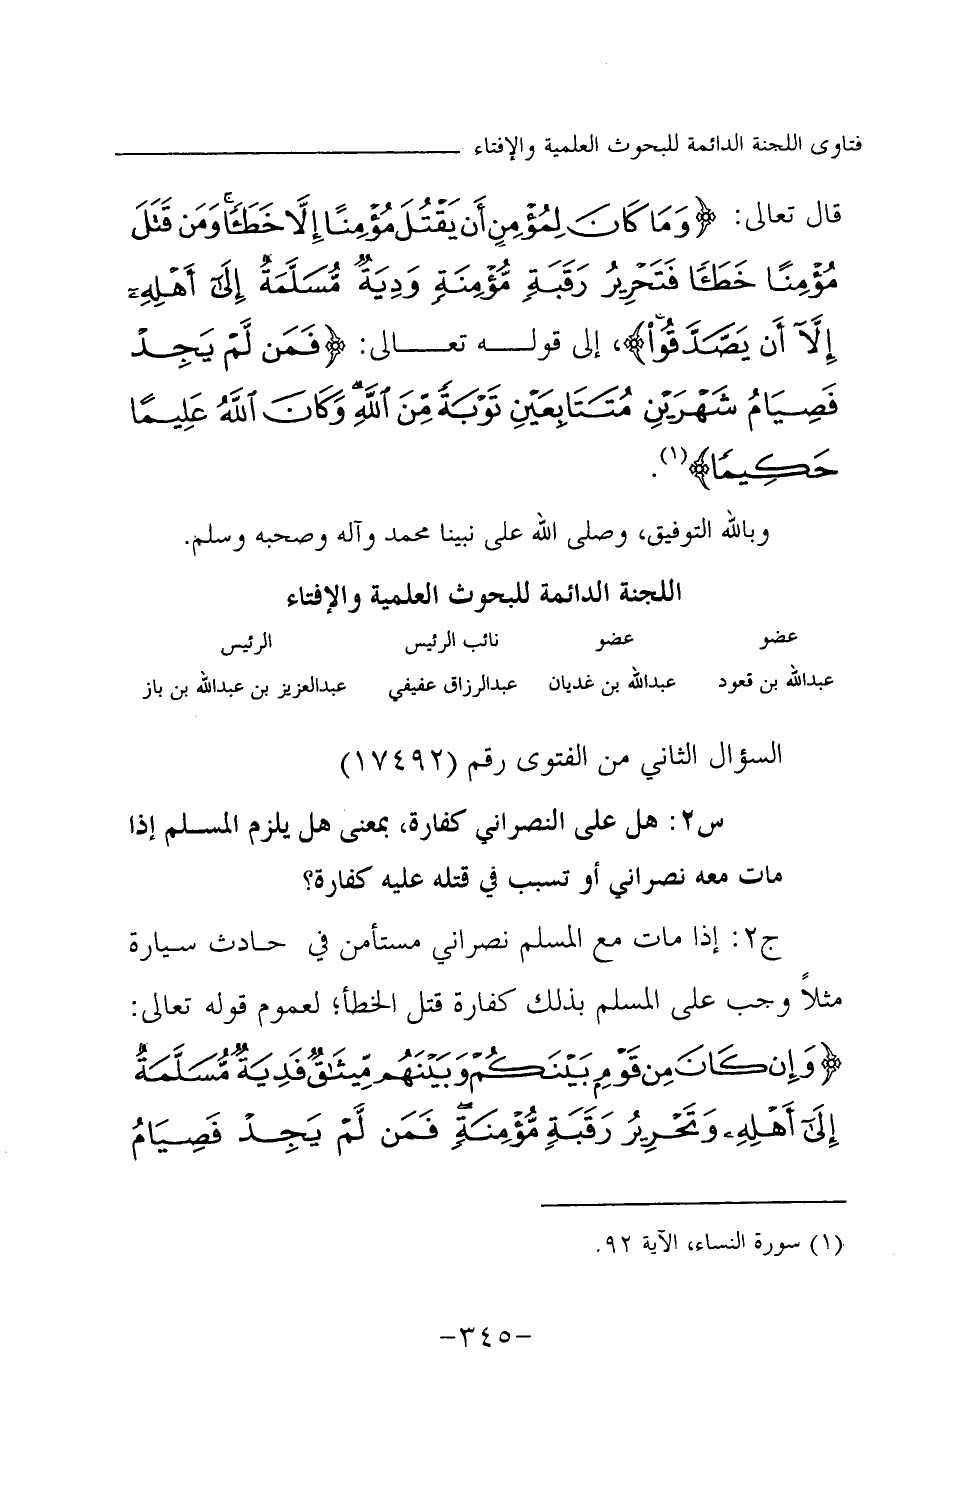 فتاوى اللجنة الدائمة للبحوث العلمية والإفتاء
قال تعالى: ﴿وَمَا كَانَ لِمُؤْمِنٍ أَن يَقْتُلَ مُؤْمِنًا إِلَّا خَطَـًٔا ۚ وَمَن قَتَلَ
مُؤْمِنًا خَطَـًٔا فَتَحْرِيرُ رَقَبَةٍ مُّؤْمِنَةٍ وَدِيَةٌ مُّسَلَّمَةٌ إِلَىٰٓ أَهْلِهِۦٓ
إِلَّآ أَن يَصَّدَّقُوا۟﴾، إلى قولـــه تعـــالى: ﴿فَمَن لَّمْ يَجِدْ
فَصِيَامُ شَهْرَيْنِ مُتَتَابِعَيْنِ تَوْبَةً مِّنَ ٱللَّهِ ۗ وَكَانَ ٱللَّهُ عَلِيمًا
حَكِيمًا﴾(١).
وبالله التوفيق، وصلى الله على نبينا محمد وآله وصحبه وسلم.
اللجنة الدائمة للبحوث العلمية والإفتاء
عضو عضو نائب الرئيس الرئيس
عبدالله بن قعود عبدالله بن غديان عبدالرزاق عفيفي عبدالعزيز بن عبدالله بن باز
السؤال الثاني من الفتوى رقم (١٧٤٩٢)
س٢: هل على النصراني كفارة، بمعنى هل يلزم المسلم إذا
مات معه نصراني أو تسبب في قتله عليه كفارة؟
ج٢: إذا مات مع المسلم نصراني مستأمن في حادث سيارة
مثلاً وجب على المسلم بذلك كفارة قتل الخطأ؛ لعموم قوله تعالى:
﴿وَإِن كَانَ مِن قَوْمٍۭ بَيْنَكُمْ وَبَيْنَهُم مِّيثَـٰقٌ فَدِيَةٌ مُّسَلَّمَةٌ
إِلَىٰٓ أَهْلِهِۦ وَتَحْرِيرُ رَقَبَةٍ مُّؤْمِنَةٍ ۖ فَمَن لَّمْ يَجِدْ فَصِيَامُ
(١) سورة النساء، الآية ٩٢.
-٣٤٥-